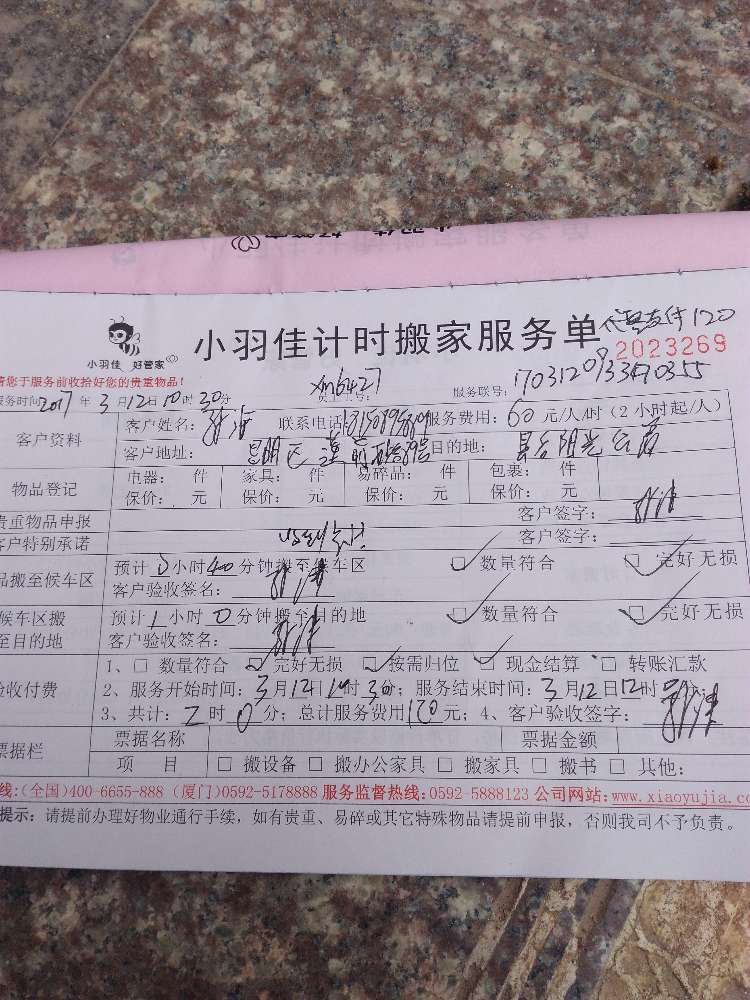 小羽佳 好管家
小羽佳计时搬家服务单 支付120
2023269
请您于服务前收拾好您的贵重物品!
服务时间2017年3月12日10时30分 xm6427 服务联号:
客户资料
客户姓名: 联系电话: 服务费用:60元/人/时(2小时起/人)
客户地址: 目的地:
物品登记
电器: 件 家具: 件 易碎品: 件 包裹: 件
保价: 元 保价: 元 保价: 元 保价: 元
贵重物品申报 客户签字:
客户特别承诺 客户签字:
品搬至候车区
预计0小时40分钟搬至候车区 数量符合 完好无损
客户验收签名:
候车区搬
至目的地
预计1小时0分钟搬至目的地 数量符合 完好无损
客户验收签名:
验收付费
1、□ 数量符合 完好无损 按需归位 现金结算 □ 转账汇款
2、服务开始时间:3月12日10时30分;服务结束时间:3月12日12时分;
3、共计:2时0分;总计服务费用120元;4、客户验收签字:
票据栏
票据名称 票据金额
项 目 □ 搬设备 □ 搬办公家具 □ 搬家具 □ 搬书 □ 其他:
线:(全国)400-6655-888 (厦门)0592-5178888 服务监督热线:0592-5888123 公司网站:www.xiaoyujia.com
提示:请提前办理好物业通行手续,如有贵重、易碎或其它特殊物品请提前申报,否则我司不予负责。